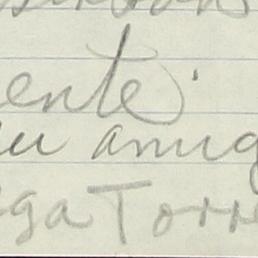 ente.
su amig
ga Torre